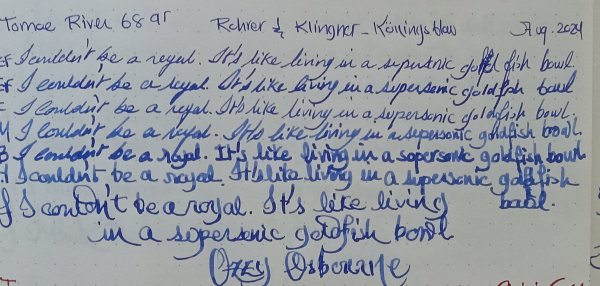 Tomoe River 68 gr Rohrer & Klingner - Königsblau Aug. 2024
EF I couldn't be a royal. It's like living in a supersonic goldfish bowl.
EF I couldn't be a royal. It's like living in a supersonic goldfish bowl
F I couldn't be a royal. It's like living in a supersonic goldfish bowl.
M I couldn't be a royal. It's like living in a supersonic goldfish bowl.
B I couldn't be a royal. It's like living in a sopersonic goldfish bowl
I couldn't be a royal. It's like living in a supersonic goldfish
bowl.
I couldn't be a royal. It's like living
in a sopersonic goldfish bowl
Ozzy Osbourne